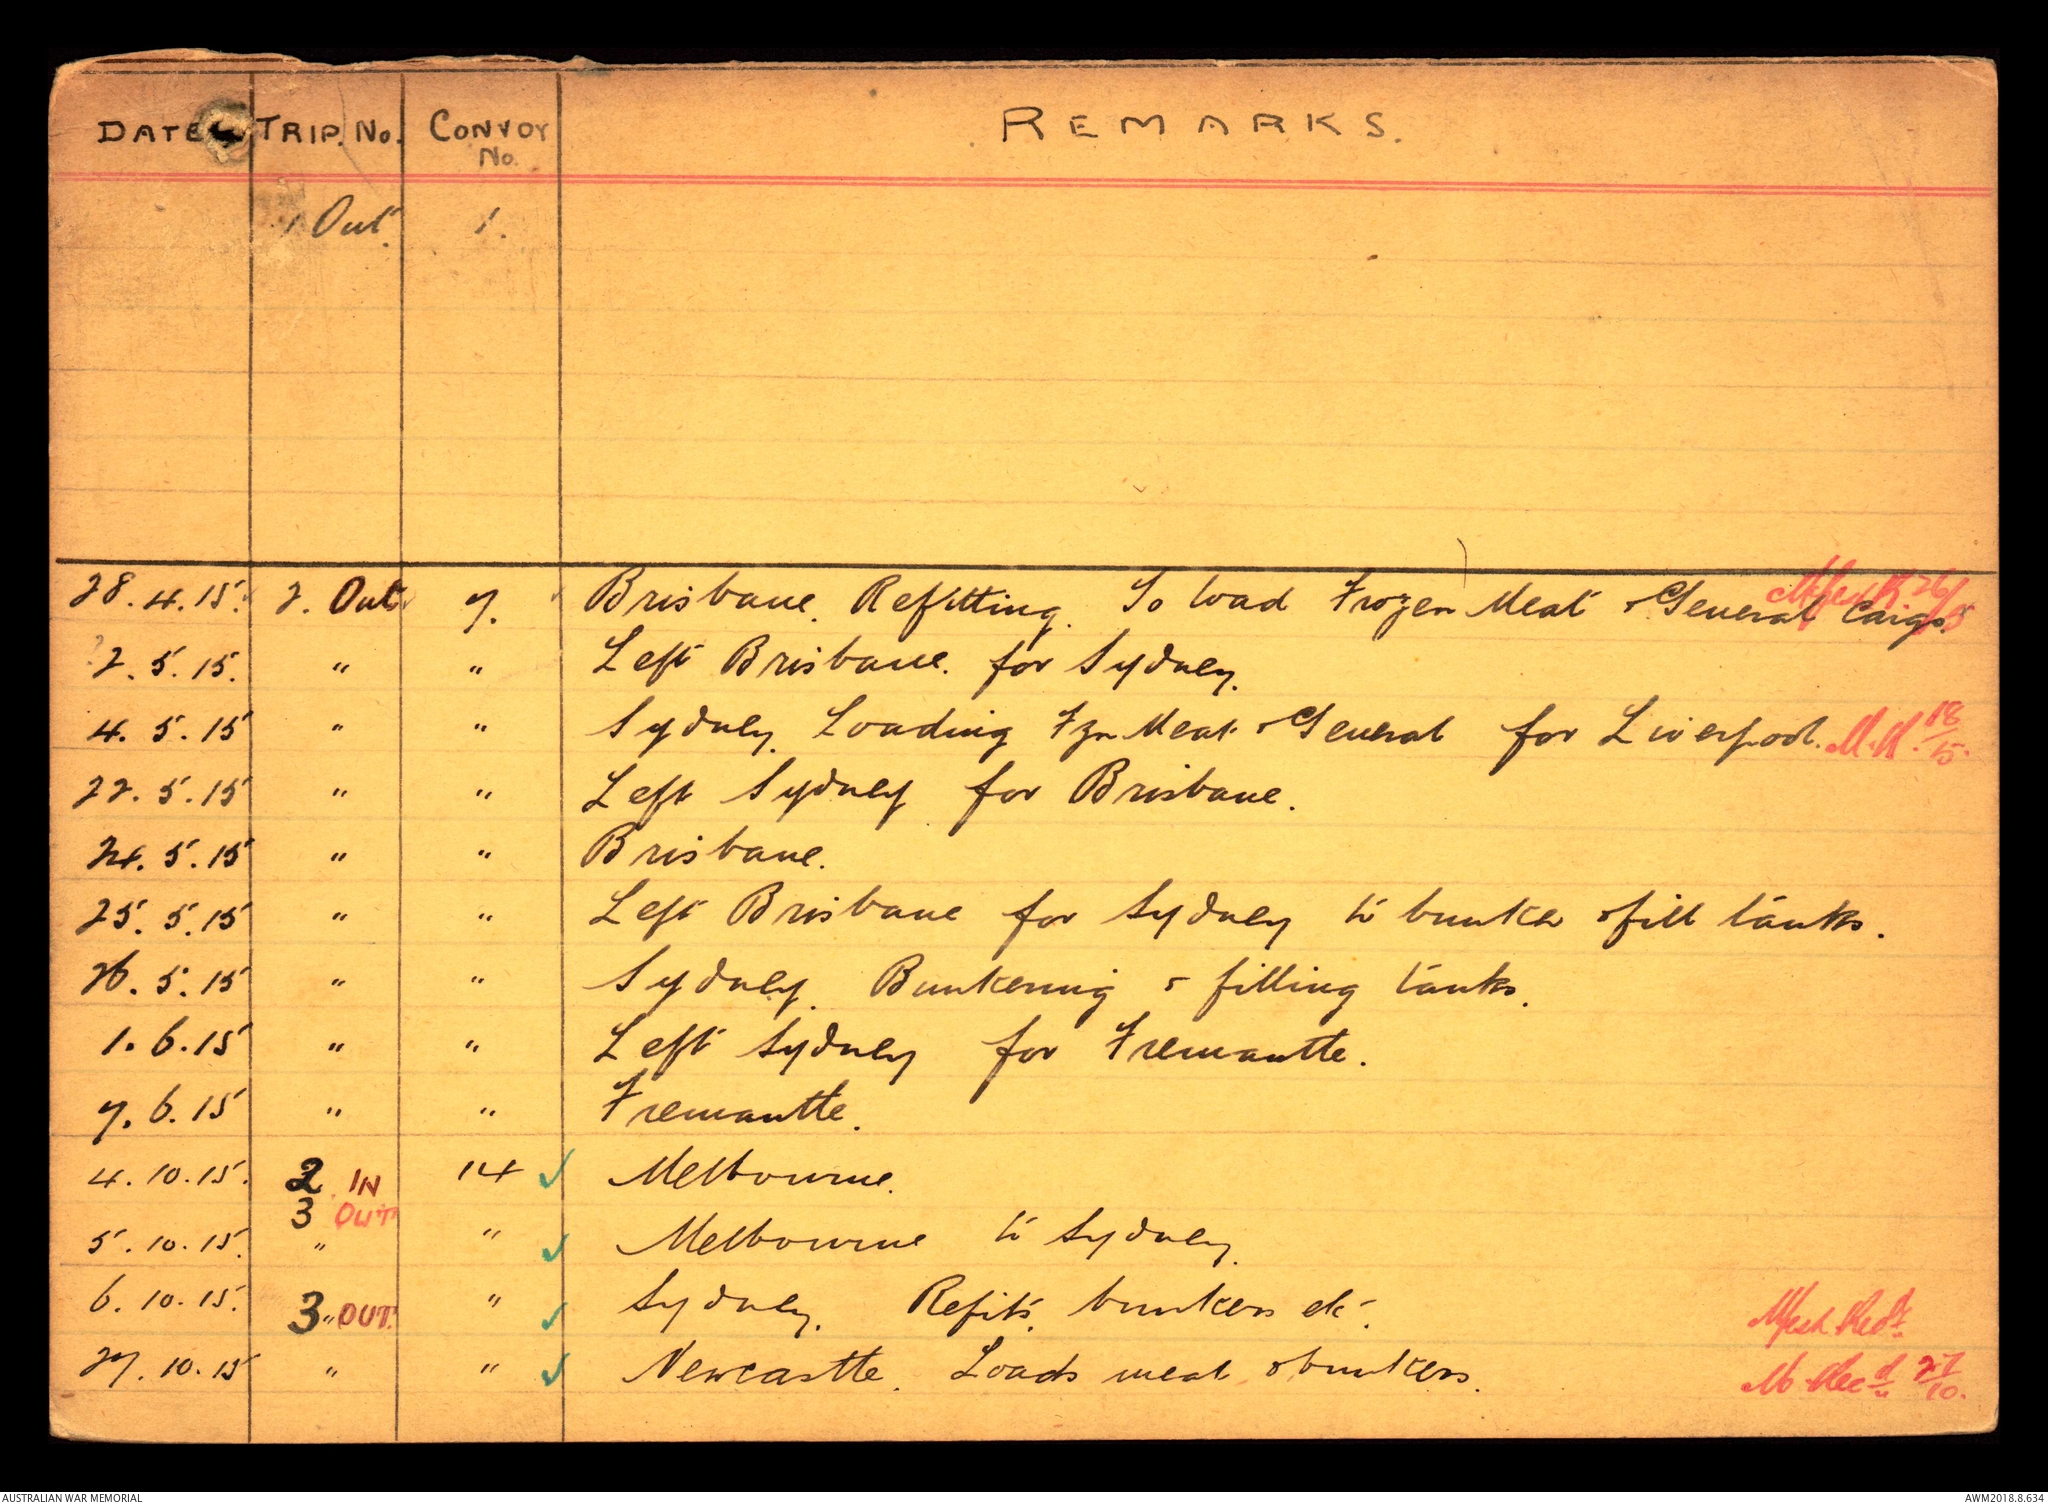 DATE TRIP. No. CONVOY No. REMARKS.
1 Out. 1.
28.4.15. 2. Out. 7. Brisbane. Refitting. To load Frozen Meat & General Cargo.
2.5.15. " " Left Brisbane. for Sydney.
4.5.15 " " Sydney. Loading Fzn Meat & General for Liverpool. M.R. 18/5.
22.5.15 " " Left Sydney for Brisbane.
24.5.15 " " Brisbane.
25.5.15 " " Left Brisbane for Sydney to bunker & fill tanks.
26.5.15 " " Sydney. Bunkering & filling tanks.
1.6.15 " " Left Sydney for Fremantle.
7.6.15 " " Fremantle.
4.10.15. 2 IN 14 ✓ Melbourne.
3 OUT
5.10.15. " " ✓ Melbourne to Sydney.
6.10.15. 3 " OUT. " ✓ Sydney. Refits. bunkers etc.
27.10.15 " " ✓ Newcastle. Loads meat & bunkers. M. Recd 27/10.
AUSTRALIAN WAR MEMORIAL
AWM2018.8.634